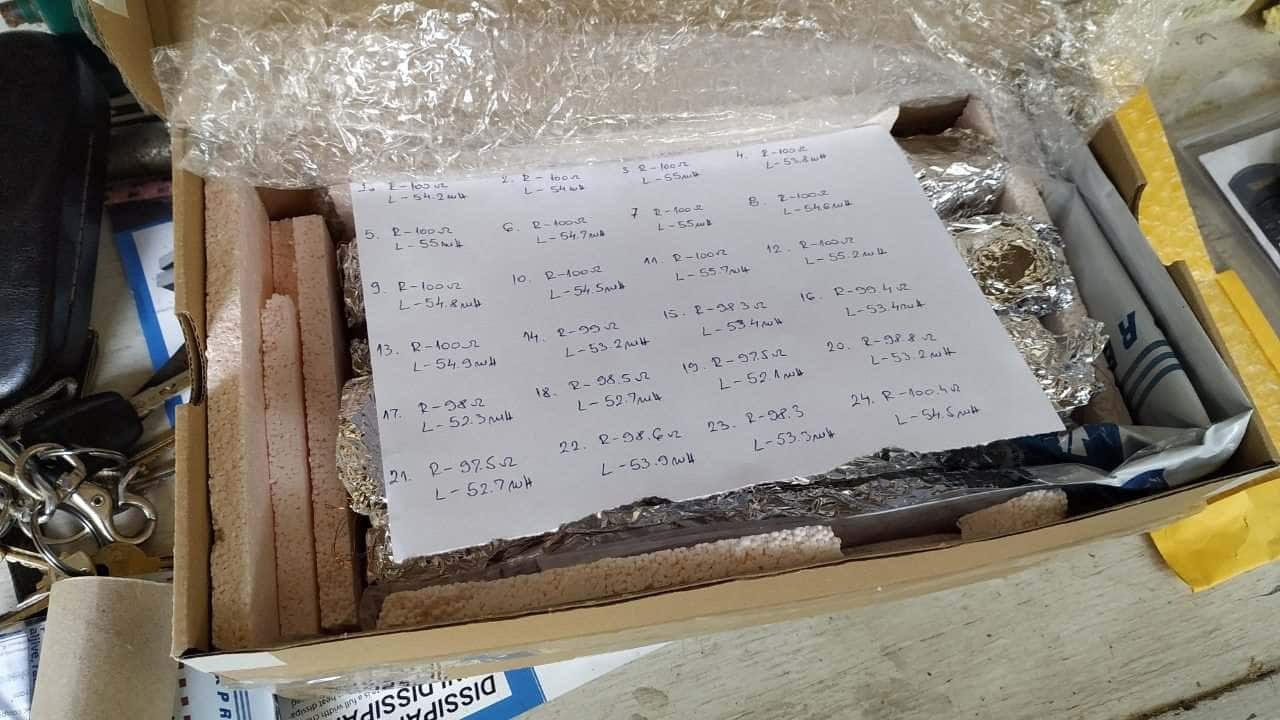 1. R-100Ω
L-54.2mH
2. R-100Ω
L-54mH
3. R-100Ω
L-55mH
4. R-100Ω
L-53.8mH
5. R-100Ω
L-55mH
6. R-100Ω
L-54.7mH
7 R-100Ω
L-55mH
8. R-100Ω
L-54.6mH
9. R-100Ω
L-54.8mH
10. R-100Ω
L-54.5mH
11. R-100Ω
L-55.7mH
12. R-100Ω
L-55.2mH
13. R-100Ω
L-54.9mH
14. R-99Ω
L-53.2mH
15. R-98.3Ω
L-53.4mH
16. R-99.4Ω
L-53.4mH
17. R-98Ω
L-52.3mH
18. R-98.5Ω
L-52.7mH
19. R-97.5Ω
L-52.1mH
20. R-98.8Ω
L-53.2mH
21. R-97.5Ω
L-52.7mH
22. R-98.6Ω
L-53.9mH
23. R-98.3
L-53.3mH
24. R-100.4Ω
L-54.5mH